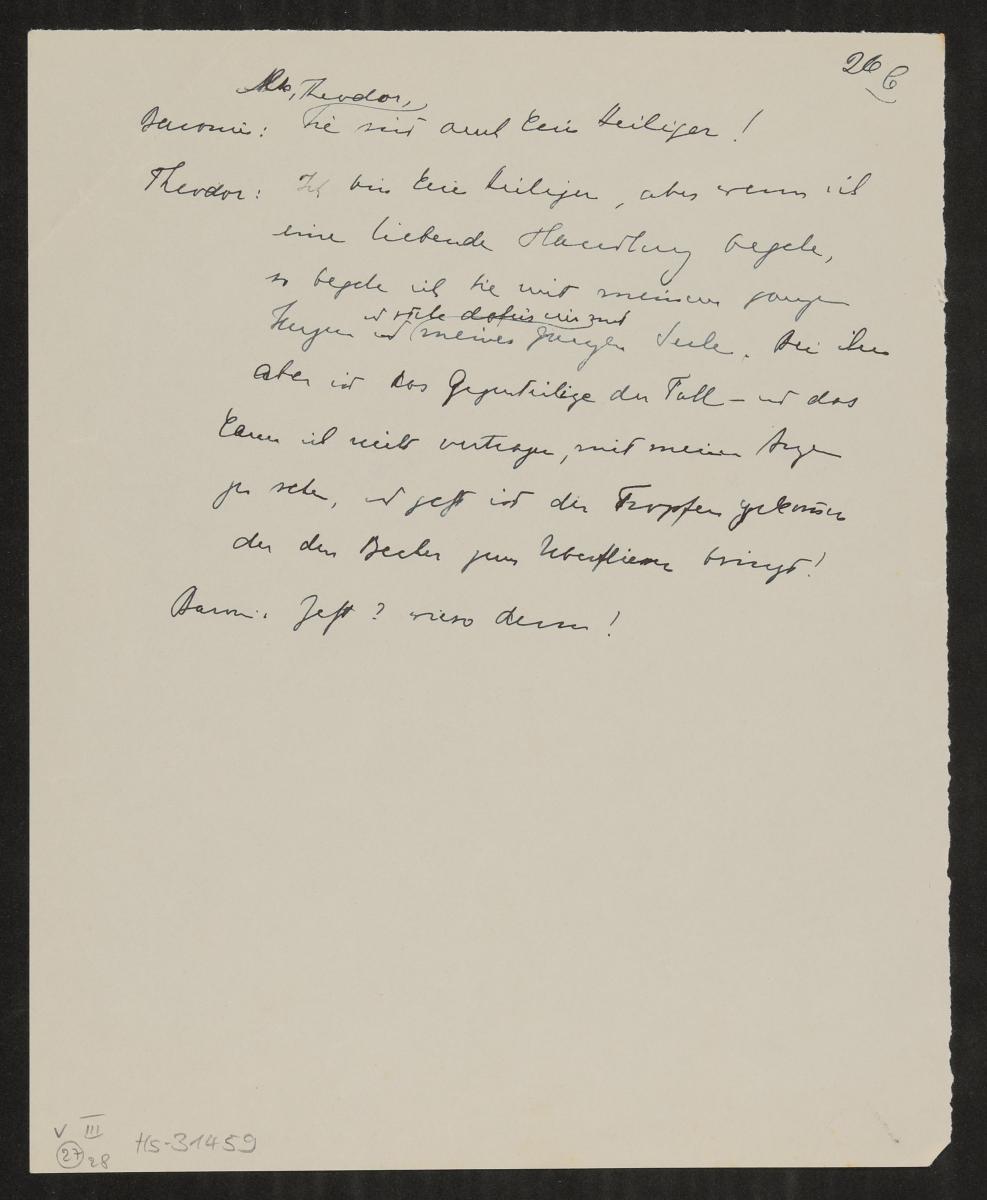 26 b
Na, Theodor,
Baronin: Sie sind auch kein Heiliger!
Theodor: Ich bin kein Heiliger, aber wenn ich
eine liebende Handlung begehe,
so begehe ich sie mit meinem ganzen
und stehe dafür ein mit
Herzen und meiner ganzen Seele. Bei ihm
aber ist das Gegenteilige der Fall – und das
kann ich nicht vertragen, mit meinen Augen
zu sehen, und jetzt ist der Tropfen gekommen
der den Becher zum Überfliessen bringt!
Baronin: Jetzt? wieso denn!
V III
27 28
Hs-31459